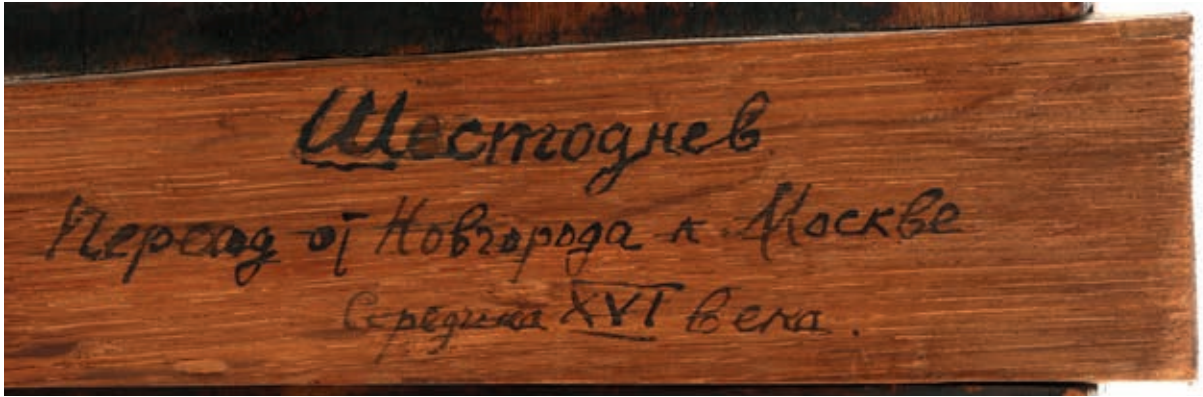 Шестоднев
Период от Новгорода к Москве
Середина XVI века.